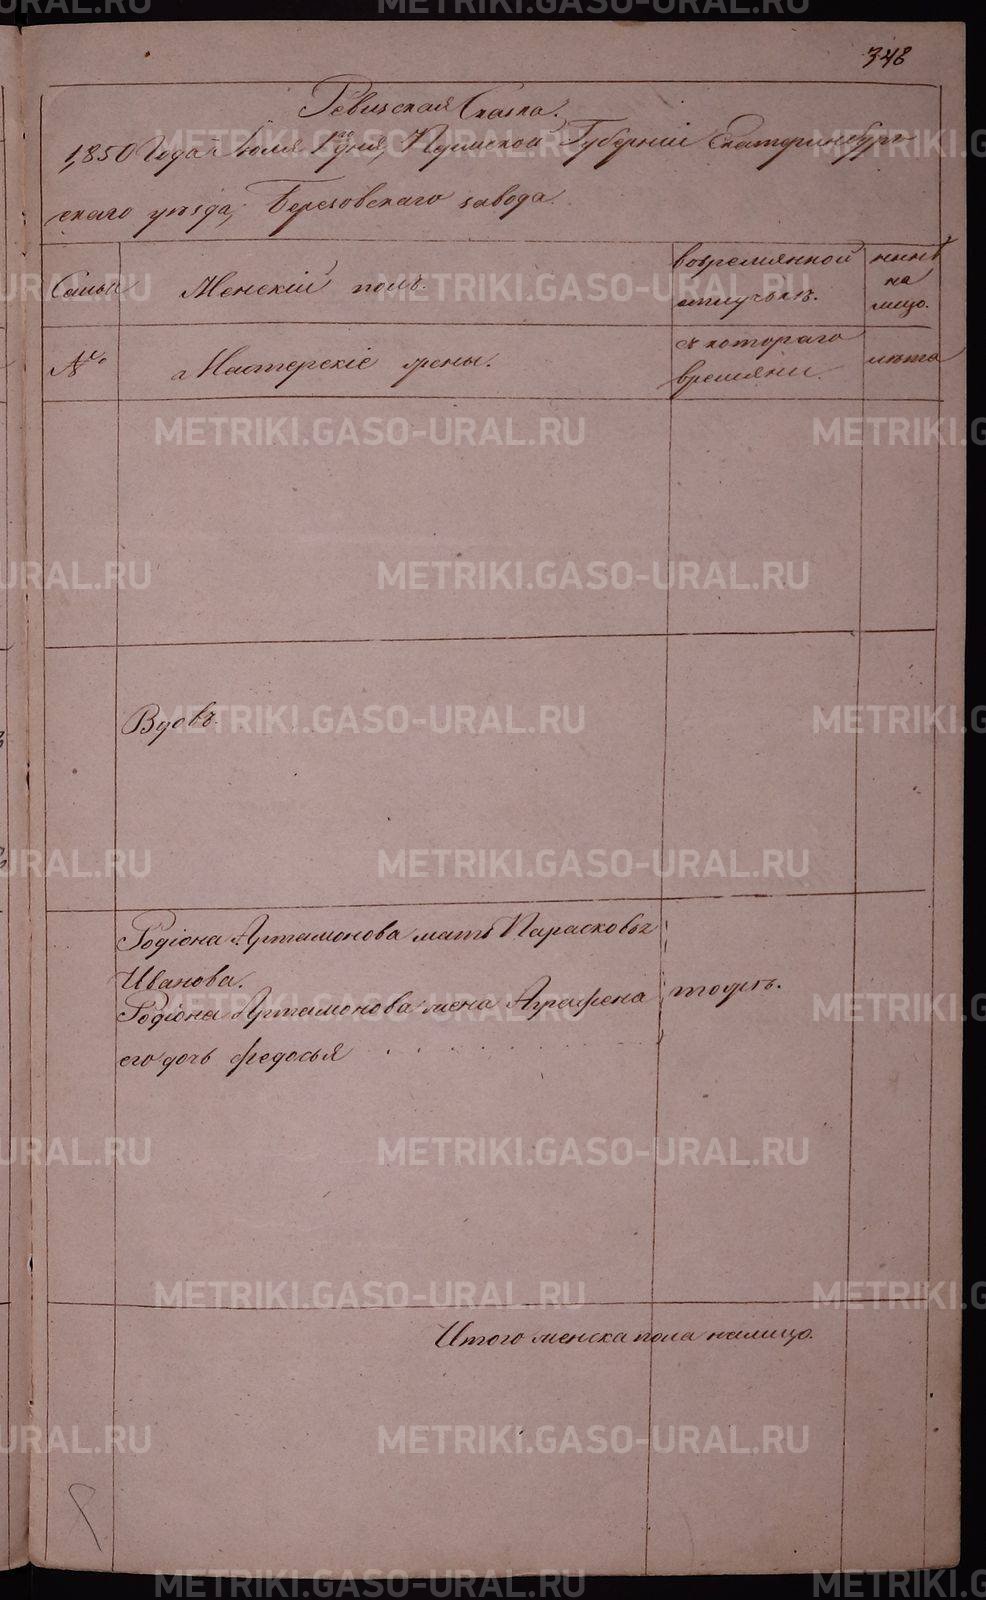 348
Ревизская Сказка.
1850 Года Июля 1го дня, Пермской Губерніи Екатеринбург-
скаго уѣзда, Березовскаго завода.
Семьи
Женскій полъ.
вовремянной
отлучькѣ.
нынѣ
на
лицо.
№
Мастерскіе жены.
с котораго
времяни.
лѣта
Вдовъ.
Родіона Артамонова мать Парасковья
Иванова.
Родіона Артамонова жена Аграфена
тожъ.
его дочь федосья
Итого женска пола налицо.
METRIKI.GASO-URAL.RU